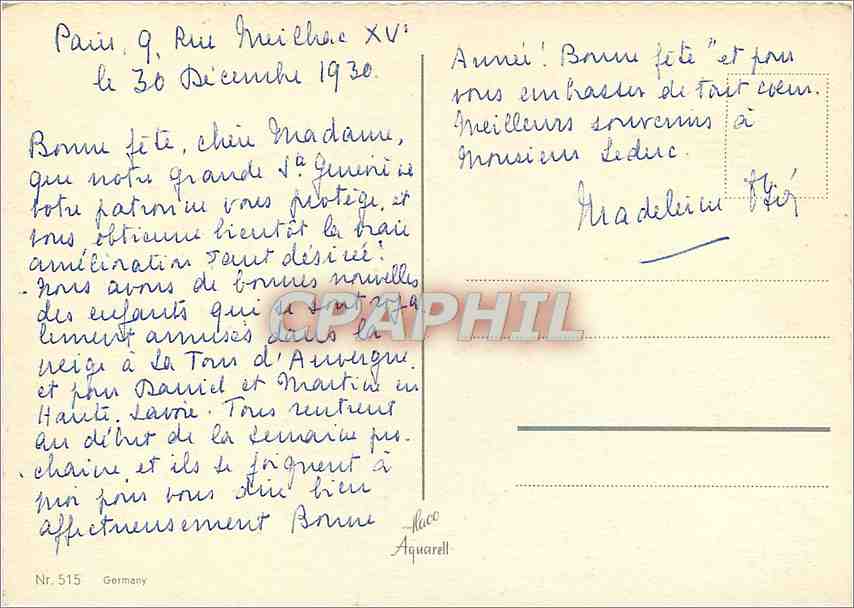 Paris, 9, Rue Meilhac XVe
le 30 Décembre 1930.
Bonne fête, chère Madame,
que notre grande Ste Geneviève
votre patronne vous protège, et
vous obtienne bientôt la vraie
amélioration tant désirée!
Nous avons de bonnes nouvelles
des enfants qui se sont roya
lement amusés dans la
neige à La Tour d'Auvergne,
et pour Daniel et Martine en
Haute-Savoie. Tous rentrent
au début de la semaine pro-
chaine et ils se joignent à
moi pour vous dire bien
affectueusement "Bonne
Année! Bonne fête" et pour
vous embrasser de tout coeur.
Meilleurs souvenirs à
Monsieur Leduc.
Madeleine
CPAPHIL
Haco
Aquarell
Nr. 515 Germany